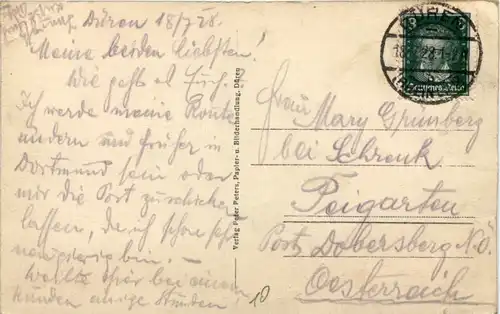 Düren 18/7 28.
Meine beiden liebsten!
Wie geht es Euch?
Ich werde meine Route
ändern und früher in
Dortmund sein oder
mir die Post zuschicken
lassen, da ich schon sehr
neugierig bin. –
Wollte hier bei einem
Kunden einige Stunden
Verlag Peter Peters, Papier- u. Bilderhandlung, Düren
DÜREN
Deutsches Reich
Frau Mary Grünberg
bei Schrenk
Peigarten
Post Dobersberg N.Ö.
Oesterreich
10